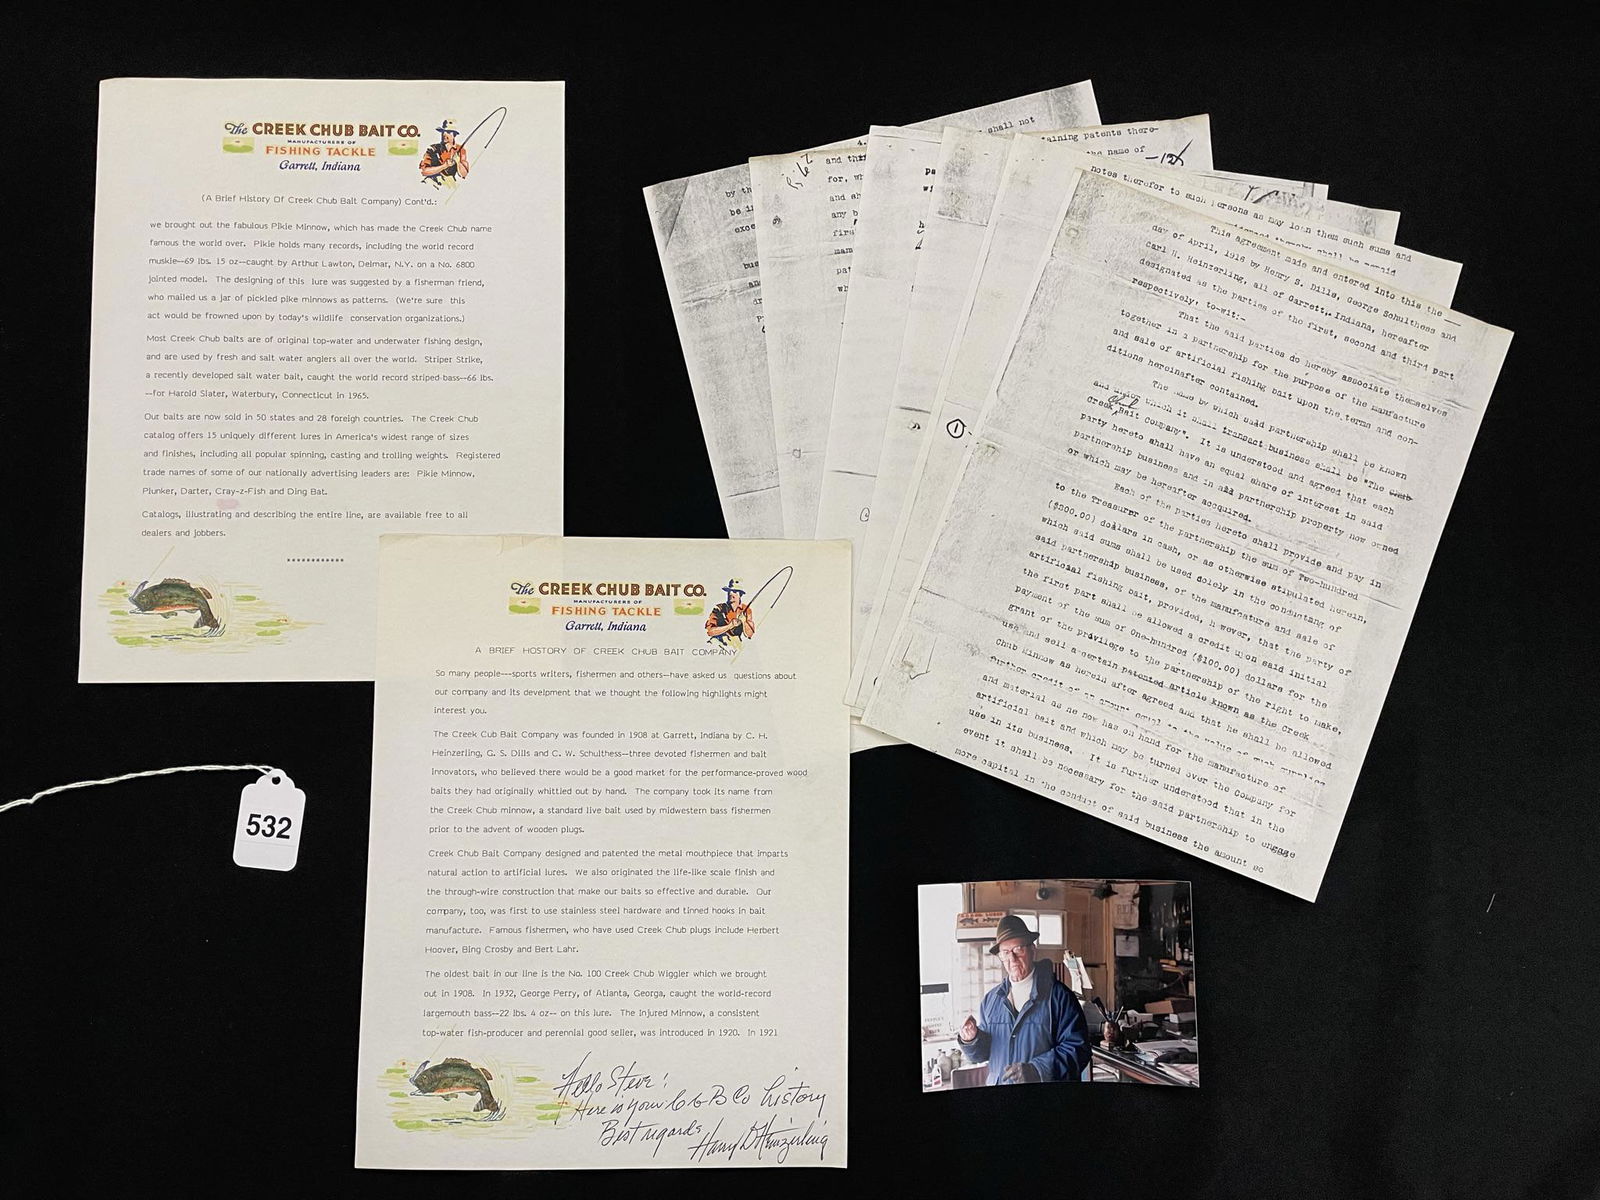 The CREEK CHUB BAIT CO.
MANUFACTURERS OF
FISHING TACKLE
Garrett, Indiana
(A Brief History Of Creek Chub Bait Company) Cont'd.:
we brought out the fabulous Pikie Minnow, which has made the Creek Chub name
famous the world over. Pikie holds many records, including the world record
muskie--69 lbs. 15 oz--caught by Arthur Lawton, Delmar, N.Y. on a No. 6800
jointed model. The designing of this lure was suggested by a fisherman friend,
who mailed us a jar of pickled pike minnows as patterns. (We're sure this
act would be frowned upon by today's wildlife conservation organizations.)
Most Creek Chub baits are of original top-water and underwater fishing design,
and are used by fresh and salt water anglers all over the world. Striper Strike,
a recently developed salt water bait, caught the world record striped bass--66 lbs.
--for Harold Slater, Waterbury, Connecticut in 1965.
Our baits are now sold in 50 states and 28 foreigh countries. The Creek Chub
catalog offers 15 uniquely different lures in America's widest range of sizes
and finishes, including all popular spinning, casting and trolling weights. Registered
trade names of some of our nationally advertising leaders are: Pikie Minnow,
Plunker, Darter, Cray-z-Fish and Ding Bat.
Catalogs, illustrating and describing the entire line, are available free to all
dealers and jobbers.
************
The CREEK CHUB BAIT CO.
MANUFACTURERS OF
FISHING TACKLE
Garrett, Indiana
A BRIEF HOSTORY OF CREEK CHUB BAIT COMPANY
So many people---sports writers, fishermen and others--have asked us questions about
our company and its devolpment that we thought the following highlights might
interest you.
The Creek Cub Bait Company was founded in 1908 at Garrett, Indiana by C. H.
Heinzerling, G. S. Dills and C. W. Schulthess--three devoted fishermen and bait
innovators, who believed there would be a good market for the performance-proved wood
baits they had originally whittled out by hand. The company took its name from
the Creek Chub minnow, a standard live bait used by midwestern bass fishermen
prior to the advent of wooden plugs.
Creek Chub Bait Company designed and patented the metal mouthpiece that imparts
natural action to artificial lures. We also originated the life-like scale finish and
the through-wire construction that make our baits so effective and durable. Our
company, too, was first to use stainless steel hardware and tinned hooks in bait
manufacture. Famous fishermen, who have used Creek Chub plugs include Herbert
Hoover, Bing Crosby and Bert Lahr.
The oldest bait in our line is the No. 100 Creek Chub Wiggler which we brought
out in 1908. In 1932, George Perry, of Atlanta, Georga, caught the world-record
largemouth bass--22 lbs. 4 oz-- on this lure. The Injured Minnow, a consistent
top-water fish-producer and perennial good seller, was introduced in 1920. In 1921
Hello Steve!
Here is your C C B Co history
Best regards
Harry D Heinzerling
532
shall not
taining patents there-
the name of
-12-
notes therefor to such persons as may loan them such sums and
4.
and
for, wh
and sh
any b
firs
by th
be i
exce
This agreement made and entered into this the
day of April, 1916 by Henry S. Dills, George Schulthess and
Carl H. Heinzerling, all of Garrett, Indiana, hereafter
designated as the parties of the first, second and third part
respectively, to-wit:-
That the said parties do hereby associate themselves
together in a partnership for the purpose of the manufacture
and sale of artificial fishing bait upon the terms and con-
ditions hereinafter contained.
The name by which said partnership shall be known
and under which it shall transact business shall be "The
Creek Chub Bait Company". It is understood and agreed that each
party hereto shall have an equal share of interest in said
partnership business and in all partnership property now owned
or which may be hereafter accquired.
Each of the parties hereto shall provide and pay in
to the Treasurer of the partnership the sum of Two-Hundred
($200.00) dollars in cash, or as otherwise stipulated herein,
which said sums shall be used dolely in the conducting of
said partnership business, of the manufacture and sale of
artificial fishing bait, provided, h wever, that the party of
the first part shall be allowed a credit upon said initial
payment of the sum of One-hundred ($100.00) dollars for the
grant of the privilege to the partnership of the right to make,
use and sell a certain patented article known as the Creek
Chub Minnow as herein after agreed and that he shall be allowed
further credit of an amount equal to the value of such supplies
and material as he now has on hand for the manufacture of
artificial bait and which may be turned over the Company for
use in its business. It is further understood that in the
event it shall be necessary for the said partnership to engage
more capital in the conduct of said business the amount so
1